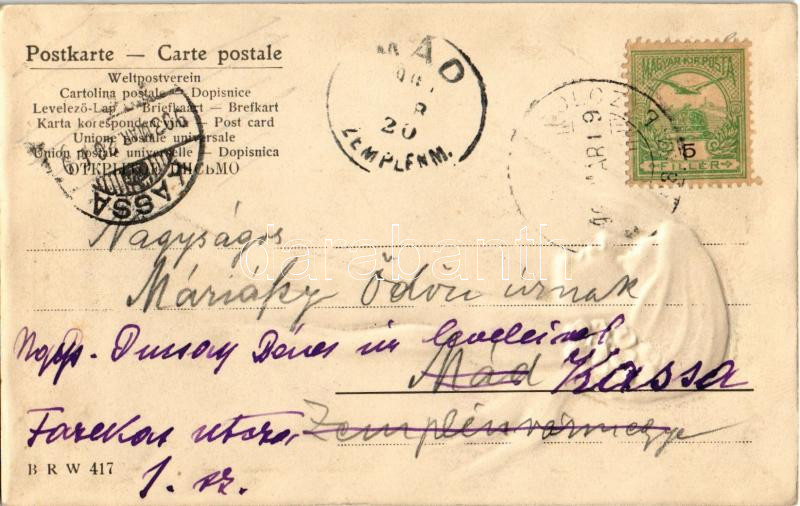 Postkarte — Carte postale
Weltpostverein
Cartolina postale — Dopisnice
Levelező-Lap — Briefkaart — Brefkort
Karta korespondencyjna — Post card
Unione postale universale
Union postale universelle — Dopisnica
ОТКРЫТОЕ ПИСЬМО
KASSA
MÁD
20
ZEMPLÉN M.
MAR 19
MAGYAR KIR. POSTA
5
FILLÉR
Nagyságos
Máriássy Ödön úrnak
Ngys. Dusay Dénes úr leveleivel
Mád Kassa
Zemplénvármegye
Farkas utsza
1. sz.
B R W 417
darabanth